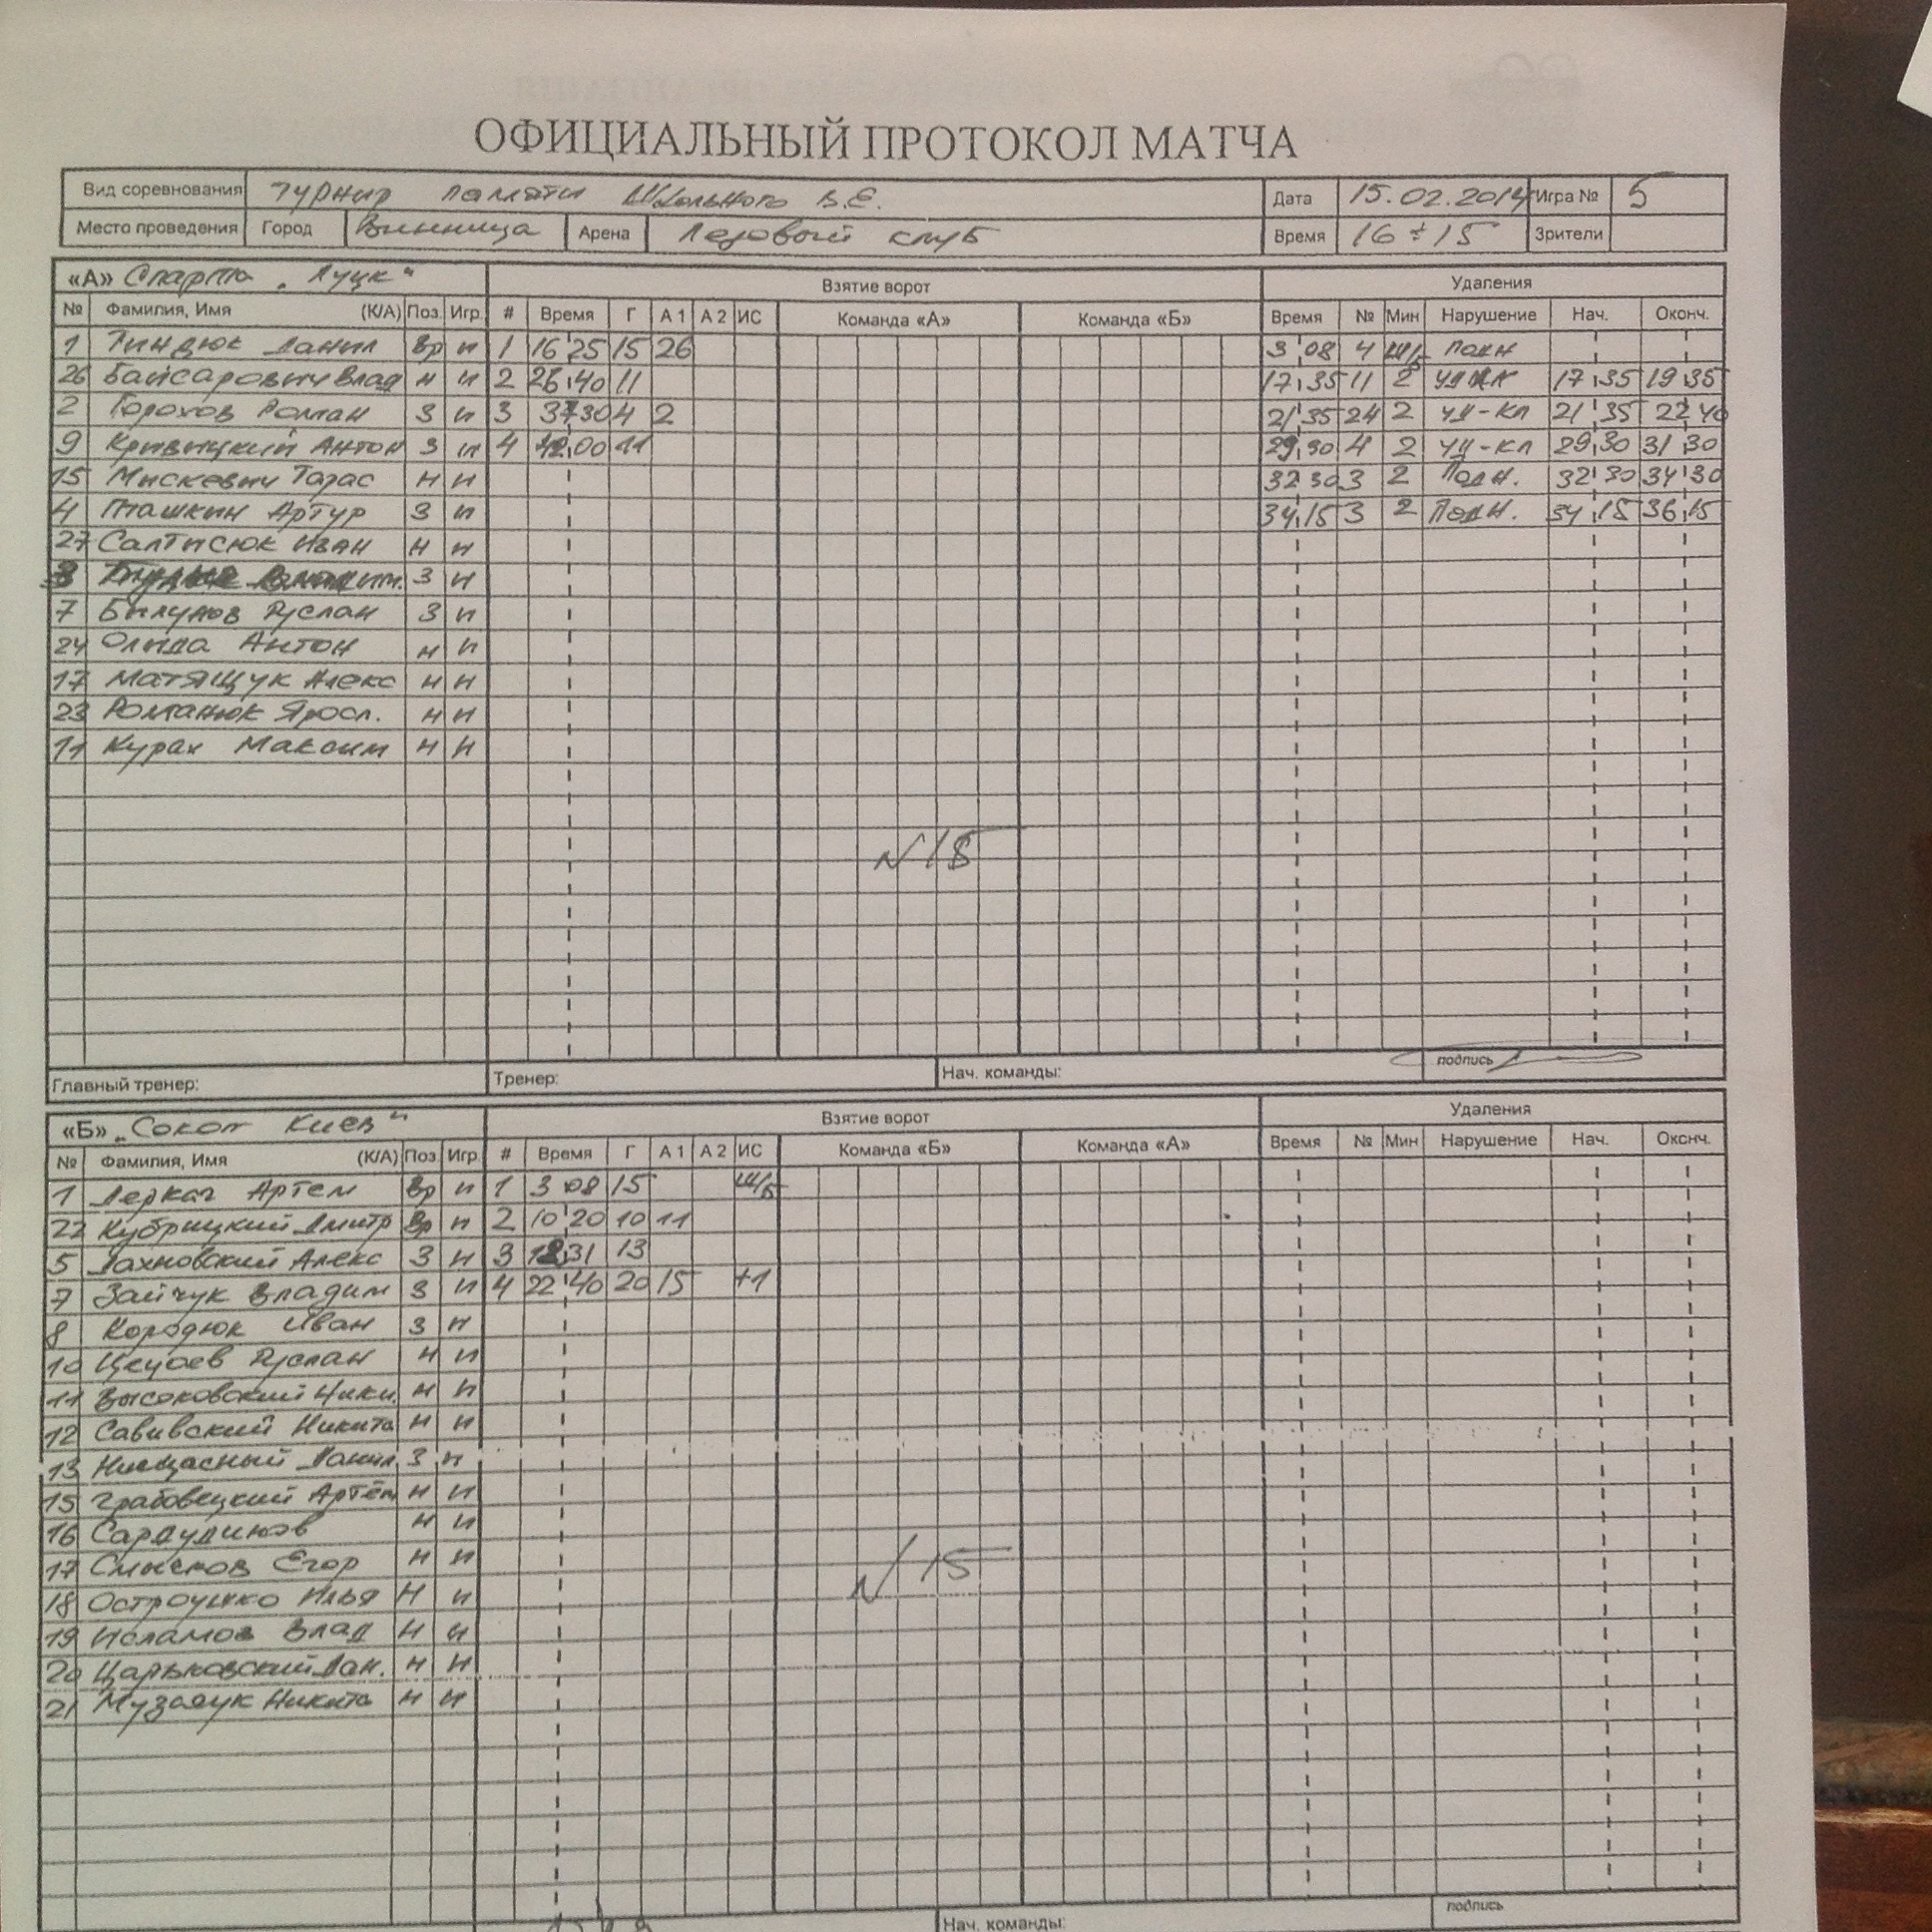 ОФИЦИАЛЬНЫЙ ПРОТОКОЛ МАТЧА
Вид соревнования турнир памяти Школьного В.Е. Дата 15.02.2014 Игра № 5
Место проведения Город Винница Арена Ледовый клуб Время 16÷15 Зрители
«А» Спарта „Луцк“ Взятие ворот Удаления
№ Фамилия, Имя (К/А) Поз. Игр. # Время Г А 1 А 2 ИС Команда «А» Команда «Б» Время № Мин Нарушение Нач. Оконч.
1 Данил Вр и 1 16 25 15 26 3 08 4 Ш/Б Подн
26 Байсарович Влад н и 2 26 40 11 17 35 11 2 17 35 19 35
2 Горохов Роман З и 3 37 30 4 2 21 35 24 2 уд-кл 21 35 22 40
9 Кривицкий Антон З и 4 42 00 11 29 30 4 2 уд-кл 29 30 31 30
15 Мискевич Тарас н и 32 30 3 2 Подн. 32 30 34 30
4 Пташкин Артур З и 34 15 3 2 Подн. 34 15 36 15
27 Салтисюк Иван н и
З и
7 Билунов Руслан З и
24 Олыда Антон н и
17 Матящук Алекс н и
23 Романюк Яросл. н и
11 Курах Максим н и
N 15
Главный тренер: Тренер: Нач. команды: подпись
«Б» „Сокол Киев“ Взятие ворот Удаления
№ Фамилия, Имя (К/А) Поз. Игр. # Время Г А 1 А 2 ИС Команда «Б» Команда «А» Время № Мин Нарушение Нач. Оконч.
1 Деркач Артем Вр и 1 3 08 15 Ш/Б
22 Кубрицкий Дмитр Вр и 2 10 20 10 11
5 Ляхновский Алекс З и 3 18 31 13
7 Зайчук Владим З и 4 22 40 20 15 +1
8 Кородюк Иван З и
10 Цецоев Руслан н и
11 Высоковский Ники. н и
12 Савивский Никита н и
13 Нищасный Данил З и
15 Грабовецкий Артём н и
16 Сардудинов н и
17 Смыслов Егор н и
18 Остроушко Илья н и
19 Исламов Влад н и
20 Царьковский Дан. н и
21 Музачук Никита н и
N 15
Нач. команды: подпись